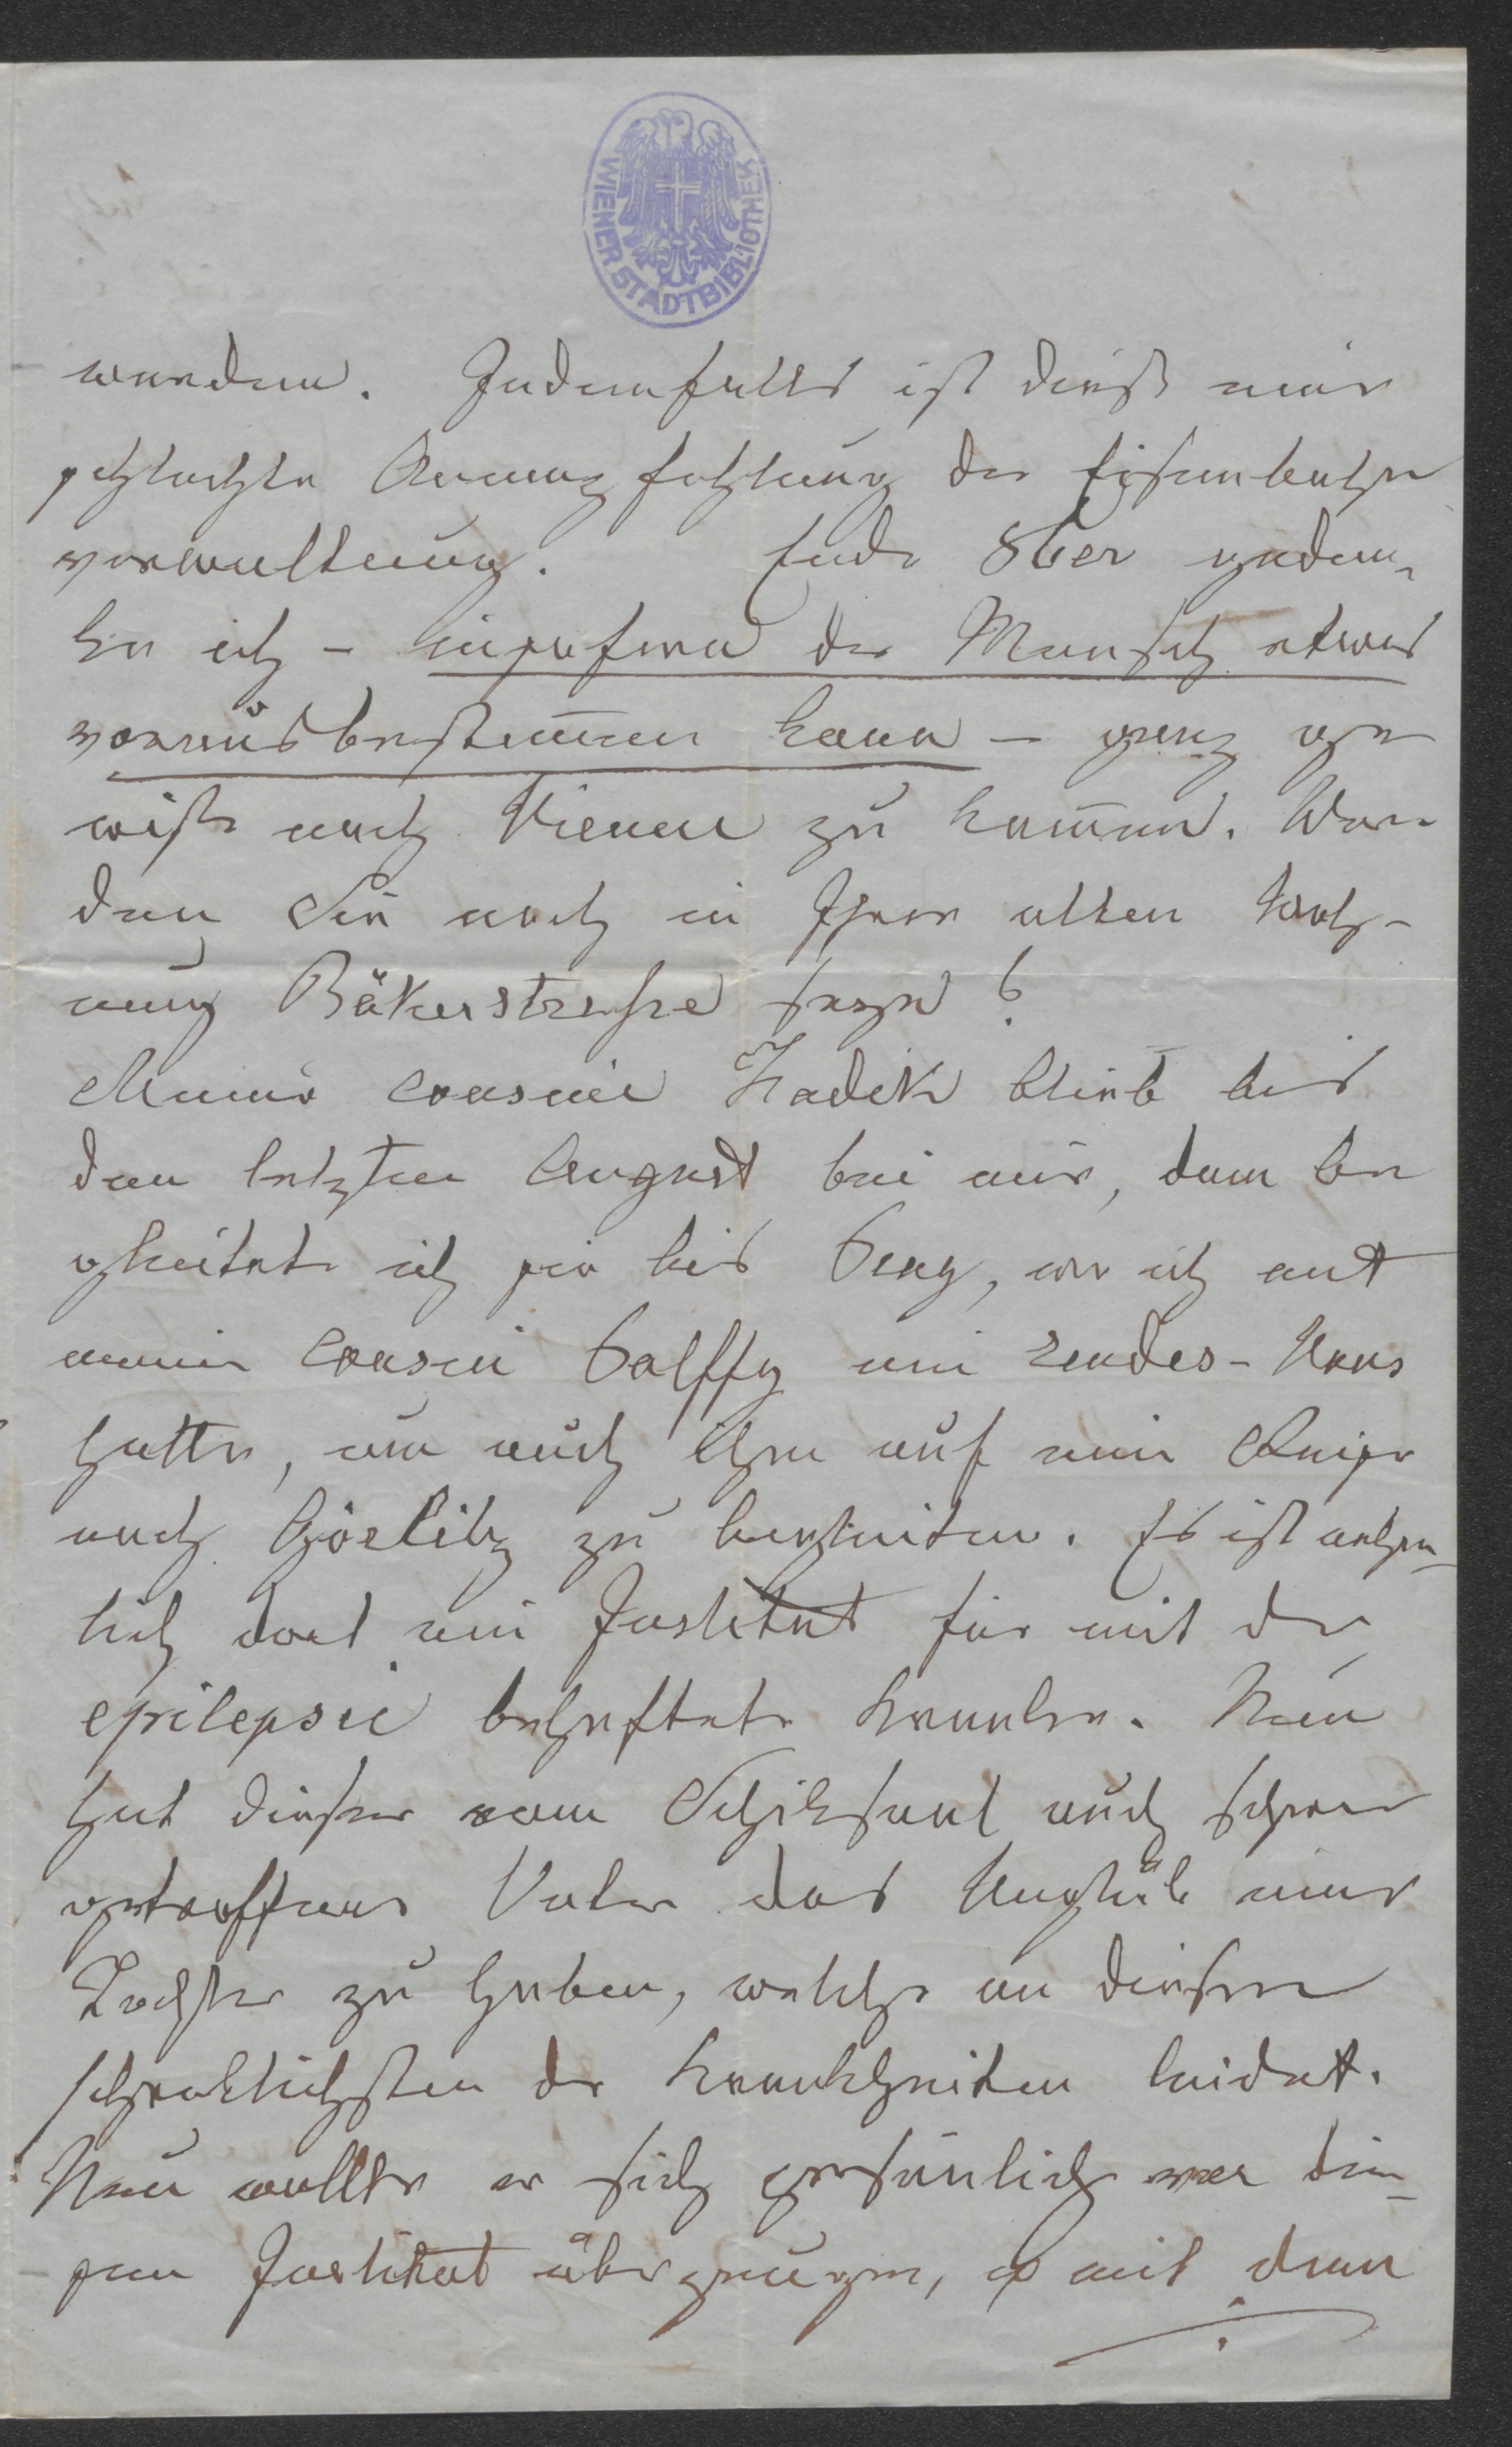 WIENER STADTBIBLIOTHEK
werden. Jedenfalls ist dieß eine
schlechte Anempfehlung der Eisenbahn
verwaltung. Ende 8ber geden¬
ke ich – insofern der Mensch etwas
vorausbestim̄en kann – ganz ge
wiß nach Vienne zu kom̄en. Wer¬
den Sie noch in Ihrer alten Woh¬
nung Bäkerstrasse seyn?
Meine Cousine Zadik blieb bis
den letzten August bei mir, dann be
gleitete ich sie bis Prag, wo ich mit
mein Cousin Palffy ein Rendes-Vous
hatte, um auch ihn auf eine Reise
nach Görlitz zu begleiten. Es ist nehm¬
lich dort ein Institut für mit der
epilepsie behaftete Kranke. Nun
hat dieser vom Schiksaal auch schwer
getroffener Vater das Unglük eine
Tochter zu haben, welche an dieser
schreklichsten der Krankheiten leidet.
Nun wollte er sich persönlich von die¬
sem Institut überzeugen, ob mit dem